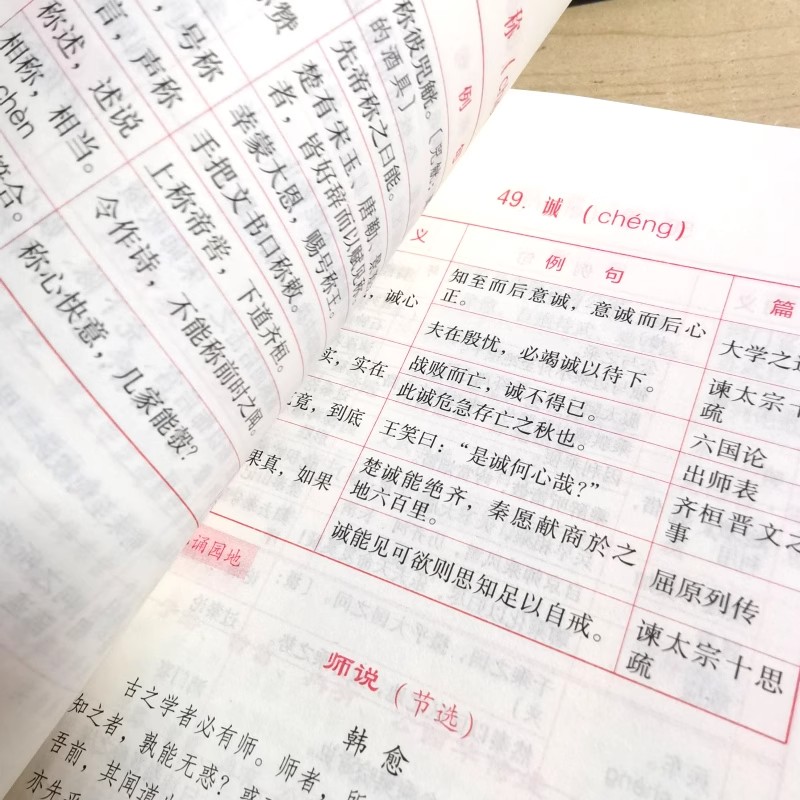 称彼兕觥。
的酒具）
先帝称之曰能。
楚有宋玉、唐勒、
者，皆好辞而以赋见称
幸蒙大恩，赐号称王。
手把文书口称敕。
上称帝喾，下道齐桓。
令作诗，不能称前时之闻。
称心快意，几家能彀？
，号称
言，声称
称述，述说
相称，相当。
chèn
符合。
称
例
49. 诚 (chéng)
义
例 句
篇
，诚心
知至而后意诚，意诚而后心
正。
大学之道
夫在殷忧，必竭诚以待下。
谏太宗十
疏
实，实在
战败而亡，诚不得已。
六国论
此诚危急存亡之秋也。
出师表
竟，到底
王笑曰：“是诚何心哉？”
齐桓晋文之
事
果真，如果
楚诚能绝齐，秦愿献商於之
地六百里。
屈原列传
诚能见可欲则思知足以自戒。
谏太宗十思
疏
诵园地
师说（节选）
韩愈
古之学者必有师。师者，所
知之者，孰能无惑？惑
吾前，其闻道也
亦先乎